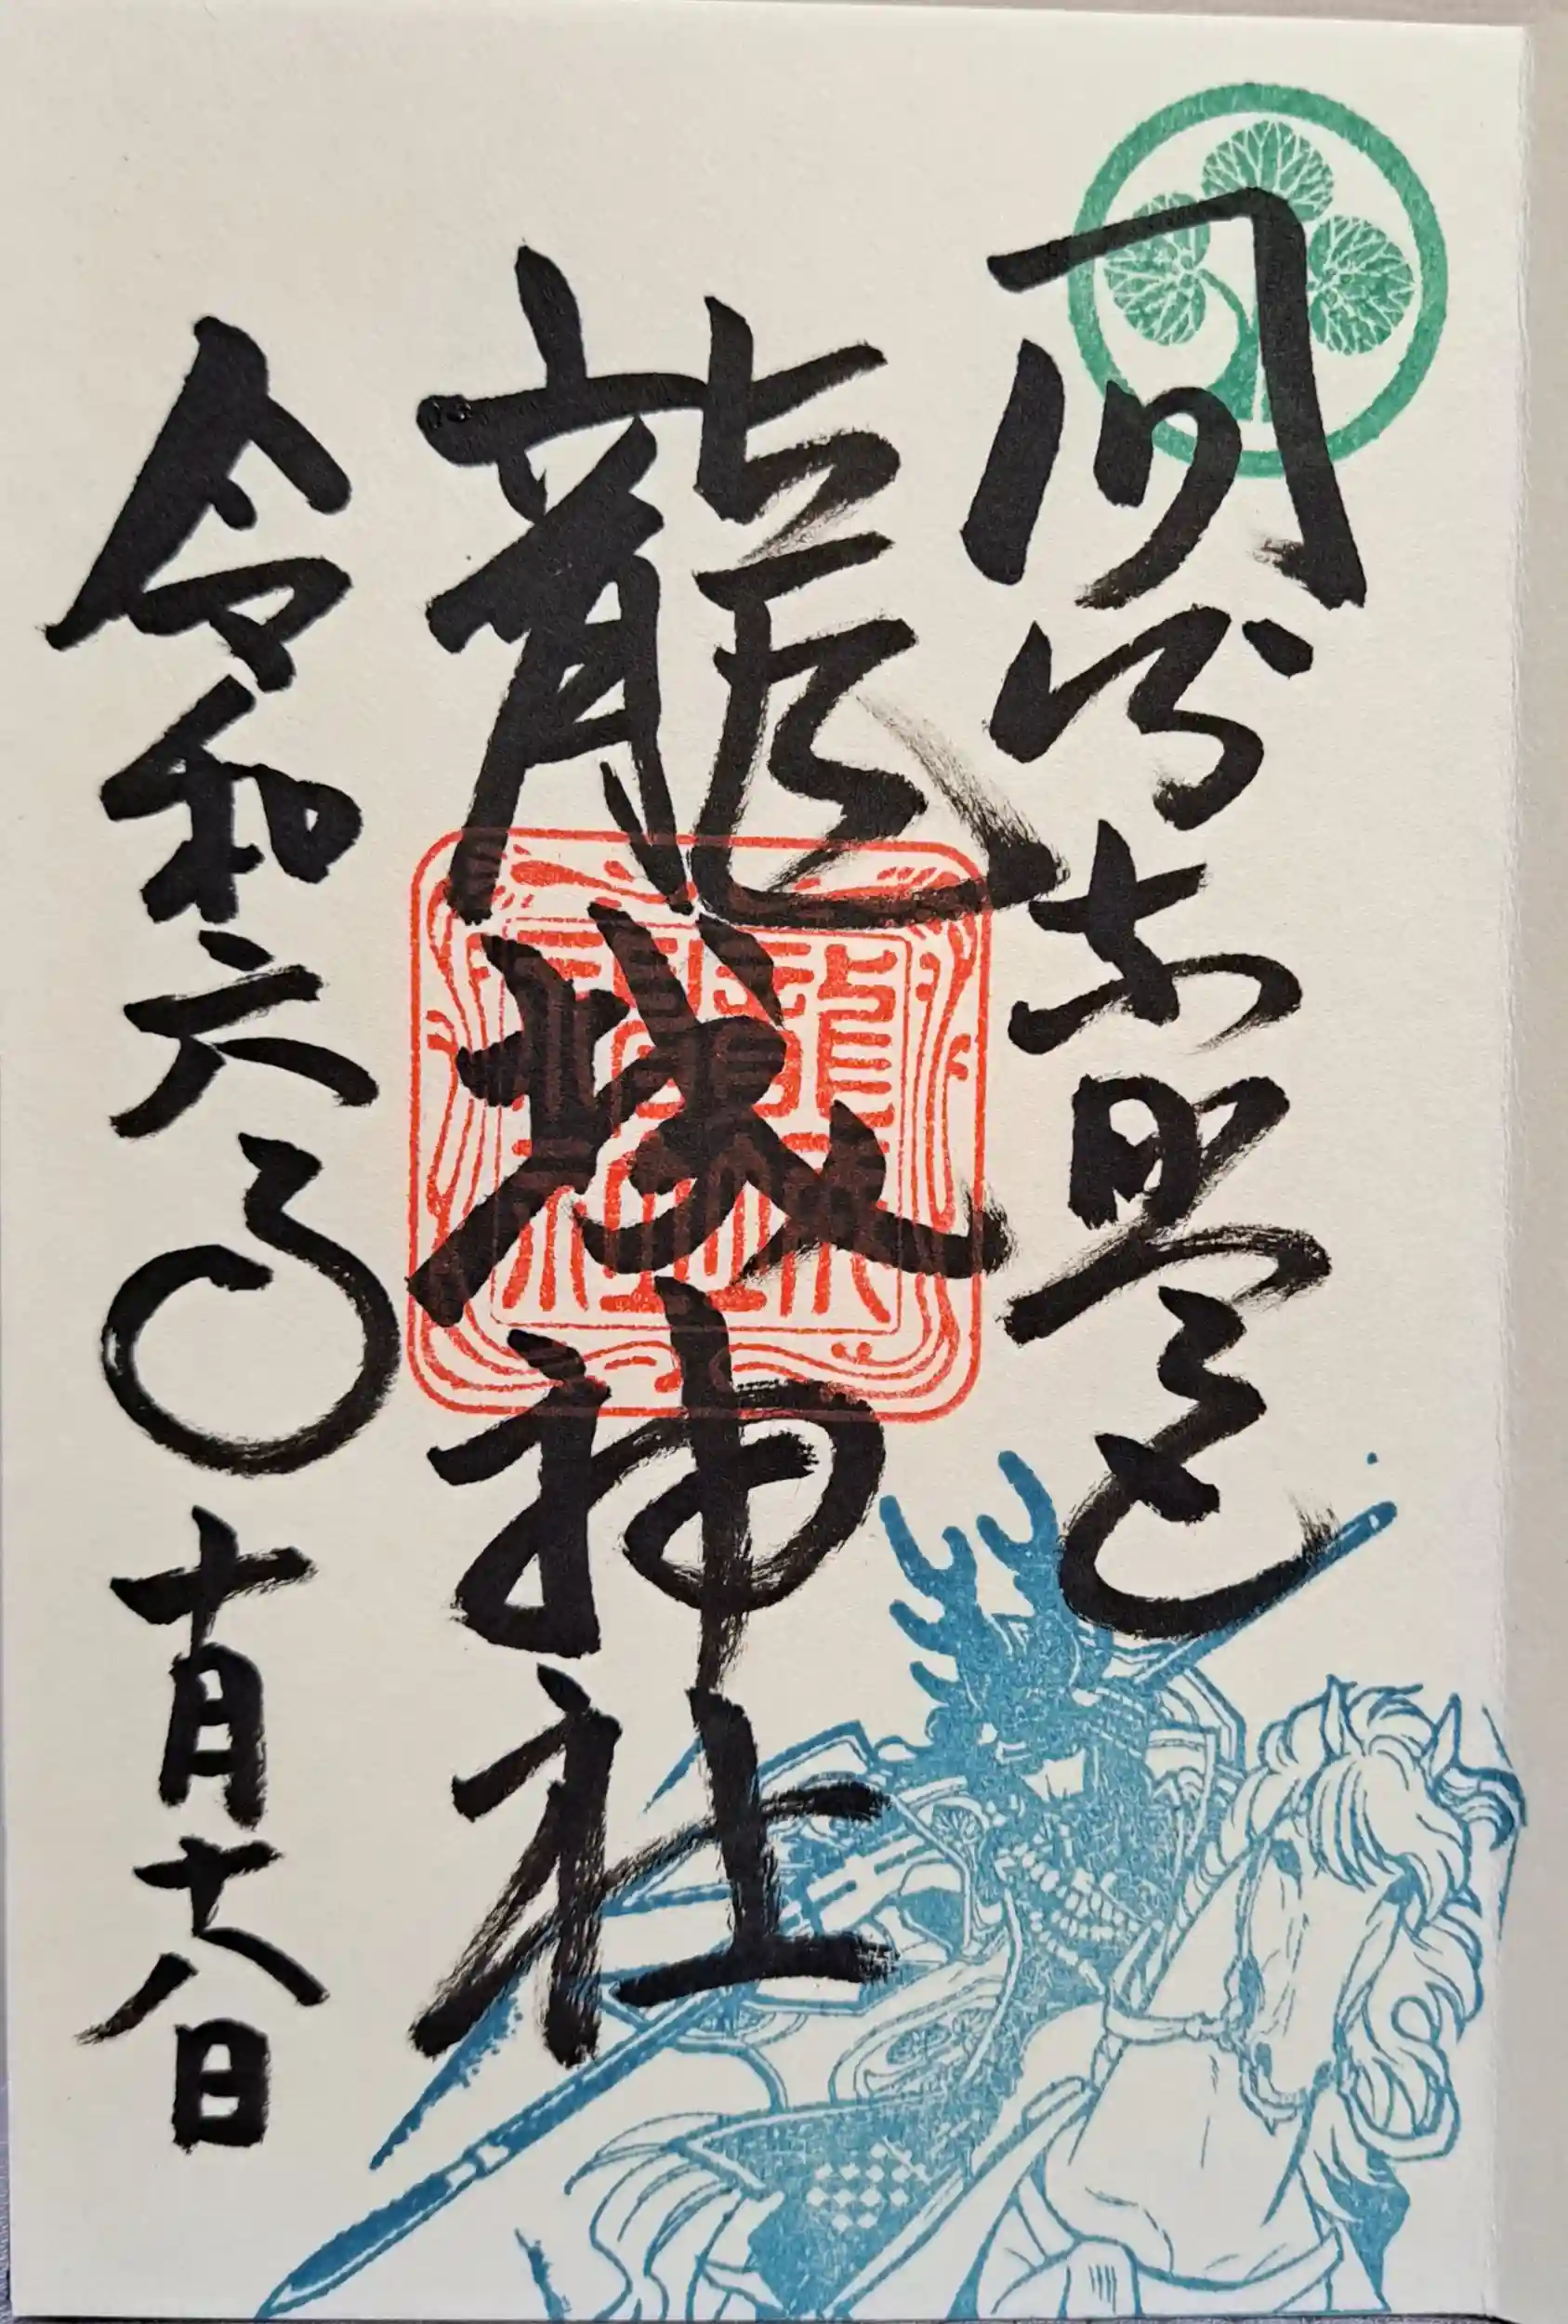 岡崎東照宮
龍城神社
令和六年十月十八日